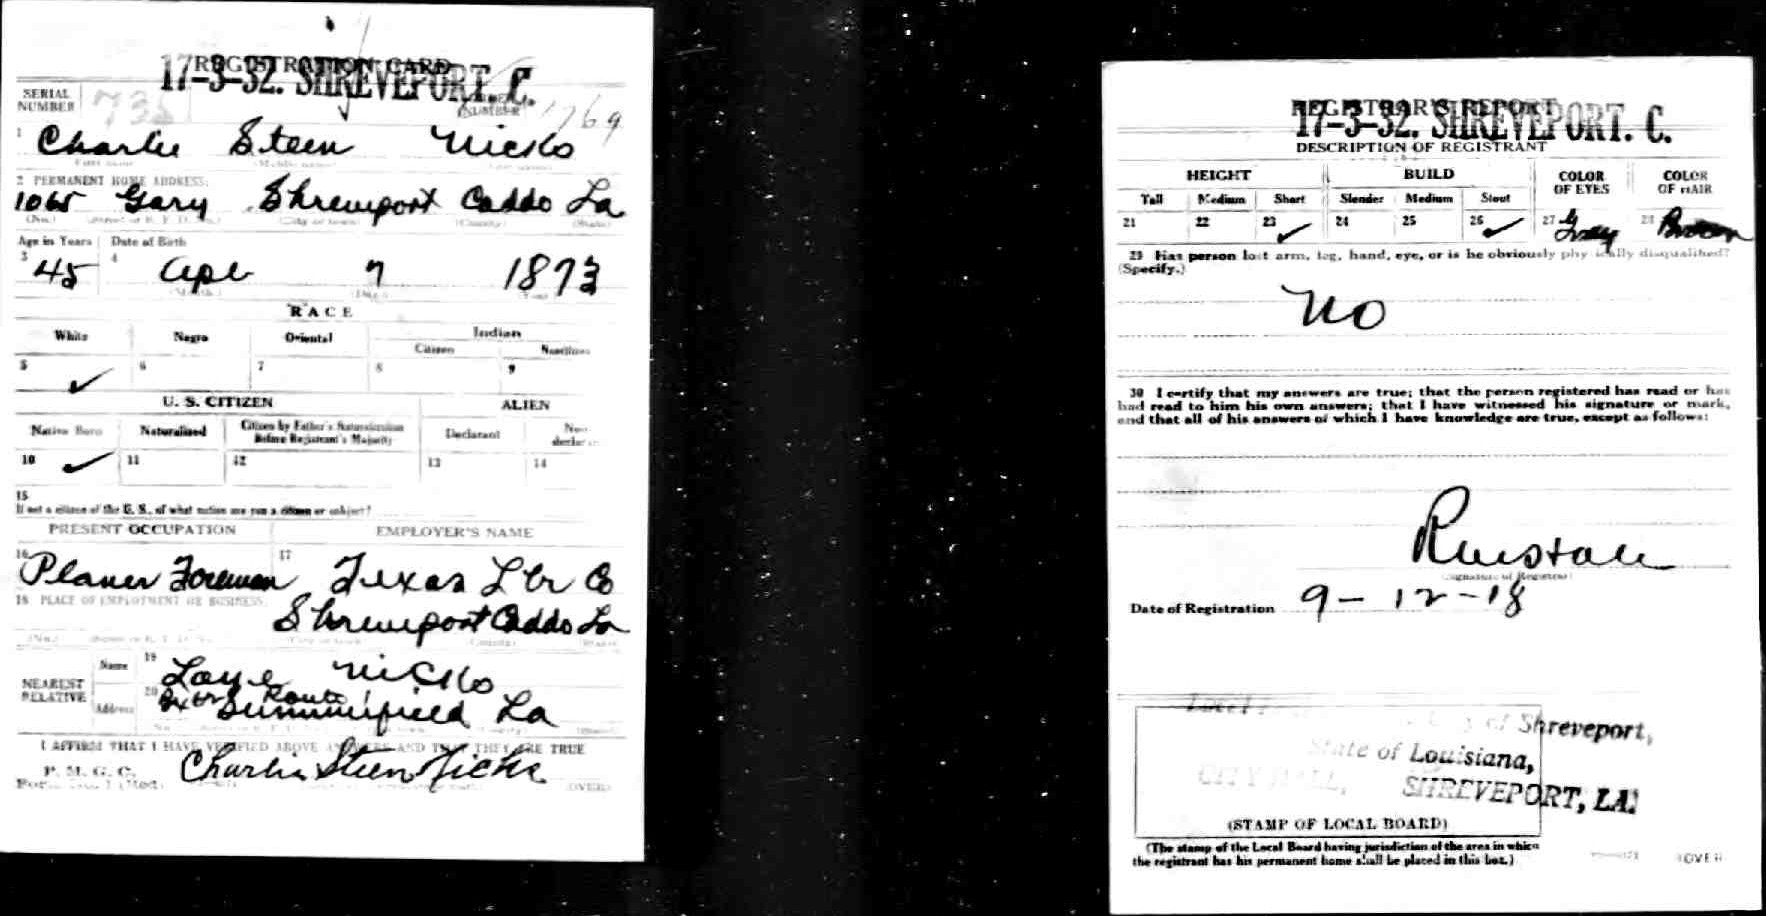 REGISTRATION CARD
17-3-32. SHREVEPORT. C.
SERIAL NUMBER 735 ORDER NUMBER 1769
1 Charlie Steen Nicks
2 PERMANENT HOME ADDRESS:
1065 Gary Shreveport Caddo La
(No.) (City or town) (County) (State)
Age in Years Date of Birth
3 45 4 Apr 7 1873
(Month) (Day) (Year)
RACE
White Negro Oriental Indian
Citizen Noncitizen
5 ✓ 6 7 8 9
U. S. CITIZEN ALIEN
Native Born Naturalized Citizen by Father's Naturalization Before Registrant's Majority Declarant Non-declarant
10 ✓ 11 12 13 14
15
If not a citizen of the U. S., of what nation are you a citizen or subject?
PRESENT OCCUPATION EMPLOYER'S NAME
16 Planer Foreman 17 Texas Lbr Co
18 PLACE OF EMPLOYMENT OR BUSINESS:
Shreveport Caddo La
(No.) (City or town) (County) (State)
NEAREST RELATIVE Name 19 Nicks
Address 20 Route 1
Summerfield La
I AFFIRM THAT I HAVE VERIFIED ABOVE ANSWERS AND THAT THEY ARE TRUE
P. M. G. O.
Form No. 1 (Red) Charlie Steen Nicks (OVER)
REGISTRAR'S REPORT
17-3-32. SHREVEPORT. C.
DESCRIPTION OF REGISTRANT
HEIGHT BUILD COLOR OF EYES COLOR OF HAIR
Tall Medium Short Slender Medium Stout
21 22 23 ✓ 24 25 26 ✓ 27 Gray 28 Brown
29 Has person lost arm, leg, hand, eye, or is he obviously physically disqualified?
(Specify.)
No
30 I certify that my answers are true; that the person registered has read or has
had read to him his own answers; that I have witnessed his signature or mark,
and that all of his answers of which I have knowledge are true, except as follows:
(Signature of Registrar)
Date of Registration 9-12-18
City of Shreveport,
State of Louisiana,
CITY HALL, SHREVEPORT, LA.
(STAMP OF LOCAL BOARD)
(The stamp of the Local Board having jurisdiction of the area in which
the registrant has his permanent home shall be placed in this box.)
(OVER)